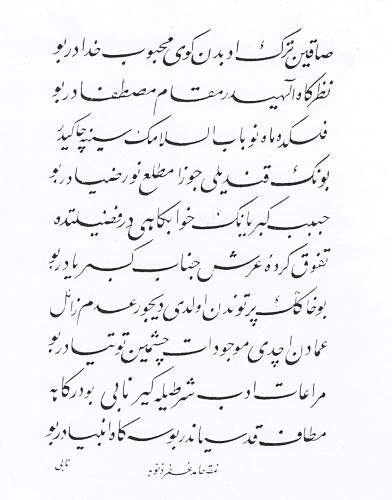 صاقين ترك ادبدن كوى محبوب خدادر بو
نظركاه الهيدر مقام مصطفادر بو
فلكده ماه نو باب السلامك سينه چاكيدر
بونك قنديلى جوزا مطلع نور ضيادر بو
حبيب كبريانك خوابكاهيدر فضيلتده
تفوق كرده عرش جناب كبريادر بو
بو خاكك پرتوندن اولدى ديجور عدم زائل
عمادن اچدى موجودات چشمين توتيادر بو
مراعات ادب شرطيله كير نابى بو دركاهه
مطاف قدسياندر بوسه كاه انبيادر بو
نابى
نمقه حامد غفر ذنوبه